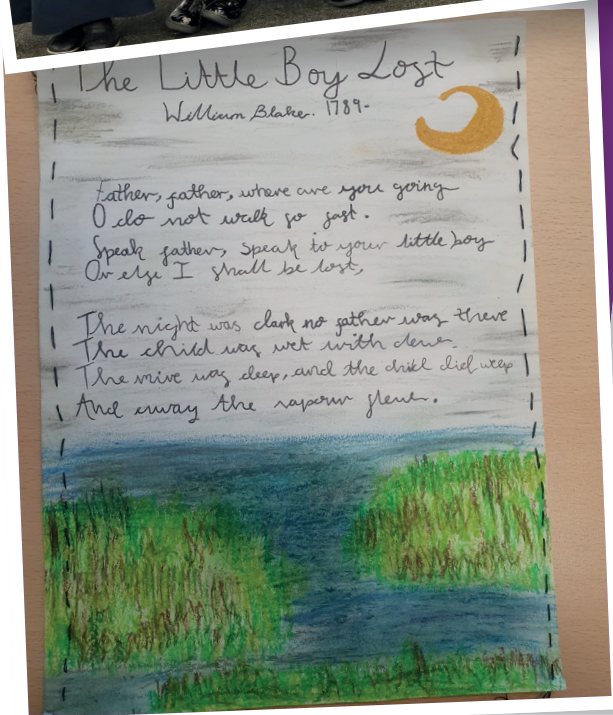 The Little Boy Lost
William Blake. 1789-
Father, father, where are you going
O do not walk so fast.
Speak father, speak to your little boy
Or else I shall be lost,
The night was dark no father was there
The child was wet with dew.
The mire was deep, and the child did weep
And away the vapour flew.